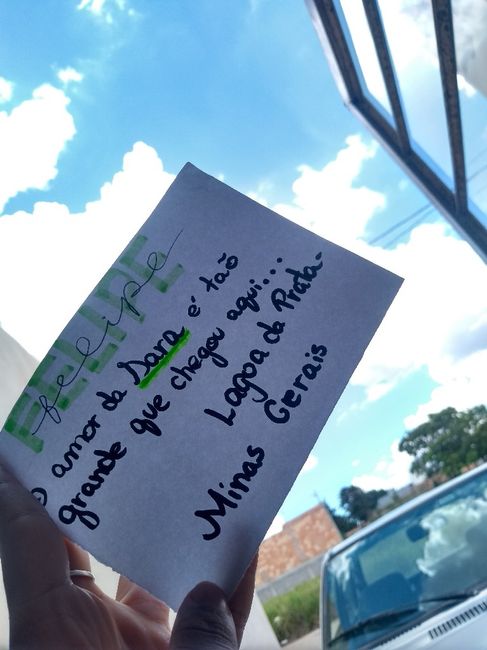 FELIPE
felipe
O amor da Sara é tão
grande que chegou aqui...
Lagoa da Prata-
Minas Gerais